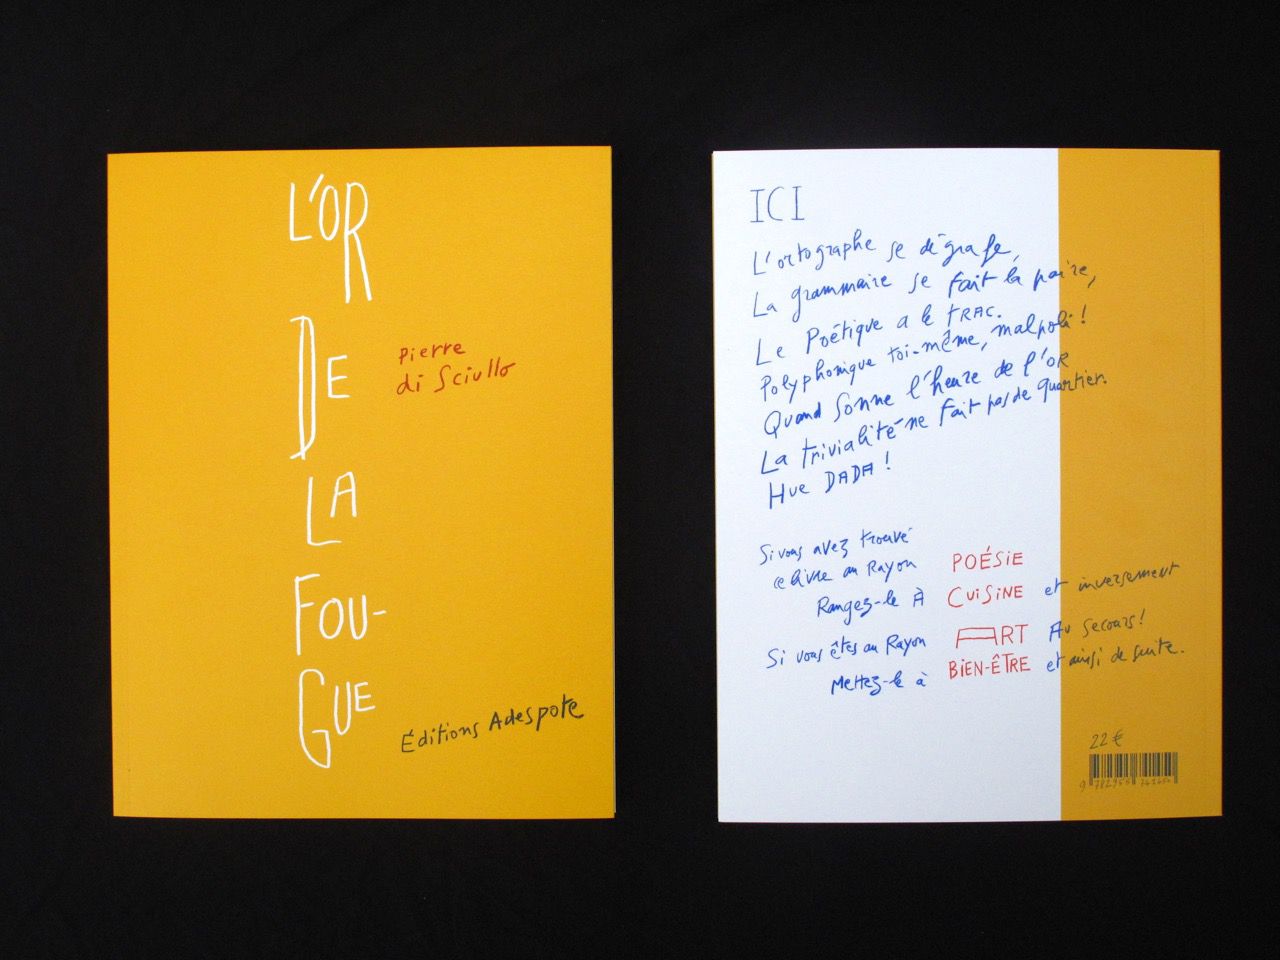 L'OR
DE
LA
FOU-
GUE
Pierre
di Sciullo
Éditions Adespote
ICI
L'ortographe se dégrafe,
La grammaire se fait la paire,
Le Poétique a le TRAC.
Polyphonique toi-même, malpoli !
Quand Sonne l'heure de l'OR
La trivialité ne fait pas de quartier.
Hue DADA !
Si vous avez trouvé
ce livre au Rayon POÉSIE
Rangez-le À CUISINE et inversement
Si vous êtes au Rayon ART Au secours !
Mettez-le à BIEN-ÊTRE et ainsi de suite.
22 €